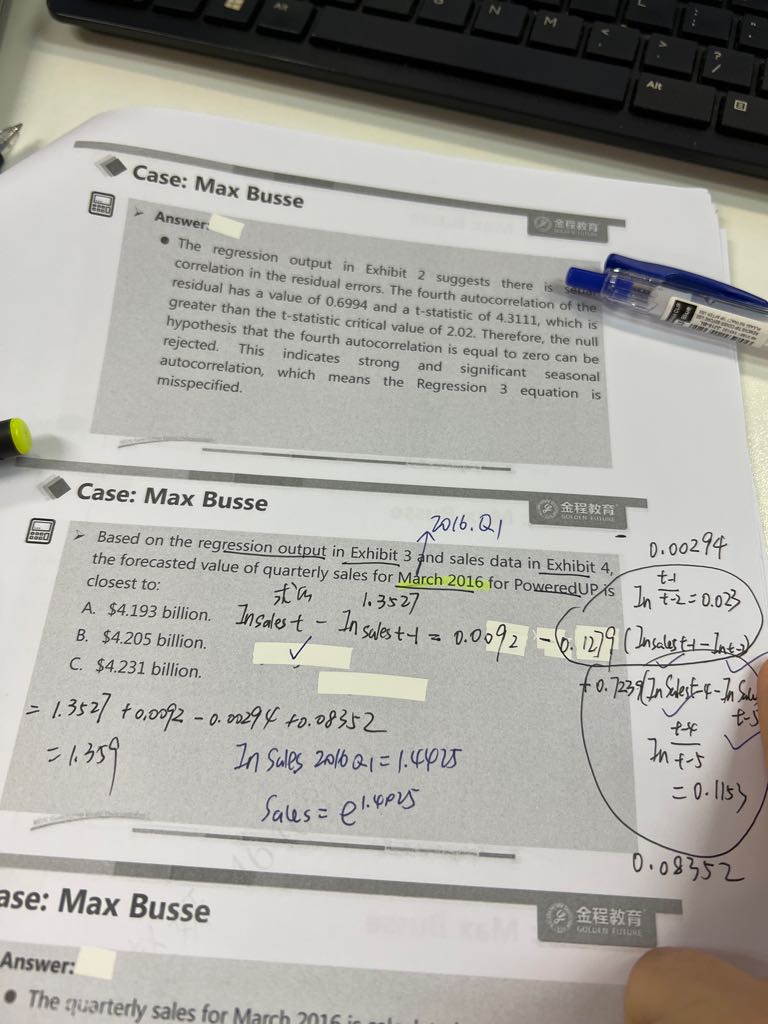 N
M
L
<
>
?
/
Alt
Case: Max Busse
金程教育
GOLDEN FUTURE
Answer:
The regression output in Exhibit 2 suggests there is
correlation in the residual errors. The fourth autocorrelation of the
residual has a value of 0.6994 and a t-statistic of 4.3111, which is
greater than the t-statistic critical value of 2.02. Therefore, the null
hypothesis that the fourth autocorrelation is equal to zero can be
rejected. This indicates strong and significant seasonal
autocorrelation, which means the Regression 3 equation is
misspecified.
Case: Max Busse
金程教育
GOLDEN FUTURE
2016.Q1
Based on the regression output in Exhibit 3 and sales data in Exhibit 4,
the forecasted value of quarterly sales for March 2016 for PoweredUP is
closest to:
A. $4.193 billion.
B. $4.205 billion.
C. $4.231 billion.
1.3527
ln sales t - ln sales t-1 = 0.0092 - 0.1279 (ln sales t-1 - ln t-2)
0.00294
ln t-1/t-2 = 0.023
+ 0.7239 (ln Sales t-4 - ln Sales t-5
ln t-4/t-5
= 0.1153
0.08352
= 1.3527 + 0.0092 - 0.00294 + 0.08352
= 1.359
ln Sales 2016 Q1 = 1.4425
Sales = e^1.4425
ase: Max Busse
金程教育
GOLDEN FUTURE
Answer:
The quarterly sales for March 2016 is